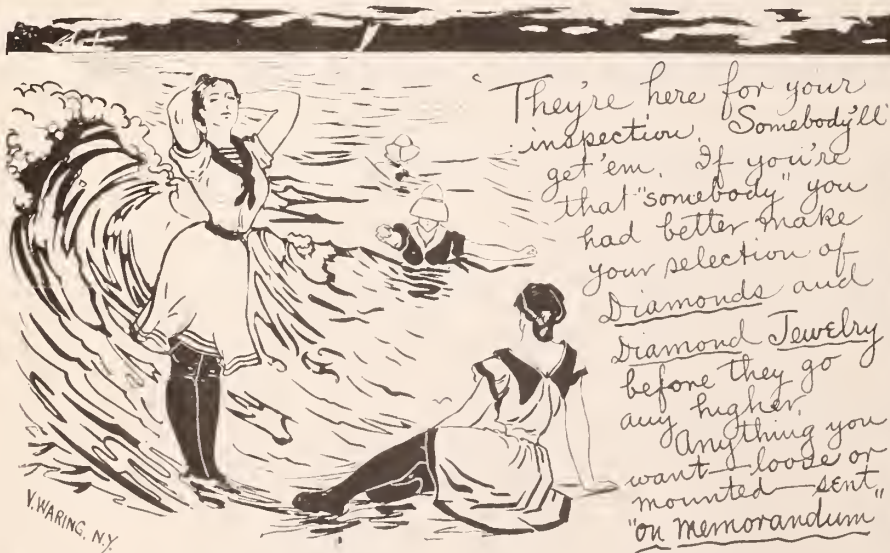 "They're here for your
inspection. Somebody'll
get 'em. If you're
that "somebody" you
had better make
your selection of
Diamonds and
Diamond Jewelry
before they go
any higher.
Anything you
want—loose or
mounted—sent
"on Memorandum"
V. WARING, N.Y.